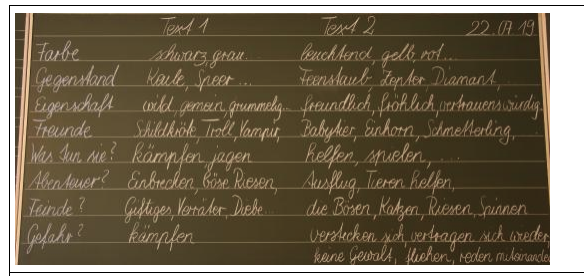 Text 1 Text 2 22.07.19
Farbe schwarz, grau... leuchtend, gelb, rot...
Gegenstand Keule, Speer... Feenstaub, Zepter Diamant,
Eigenschaft wild, gemein, grummelig... freundlich, fröhlich, vertrauenswürdig
Freunde Schildkröte, Troll, Vampir, Babytier, Einhorn, Schmetterling,
Was tun sie? kämpfen, jagen helfen, spielen, ...
Abenteuer? Einbrechen, böse Riesen, Ausflug, Tieren helfen,
Feinde? Giftiges, Verräter, Diebe... die Bösen, Katzen, Riesen, Spinnen
Gefahr? kämpfen verstecken sich, vertragen sich wieder,
keine Gewalt, fliehen, reden miteinander